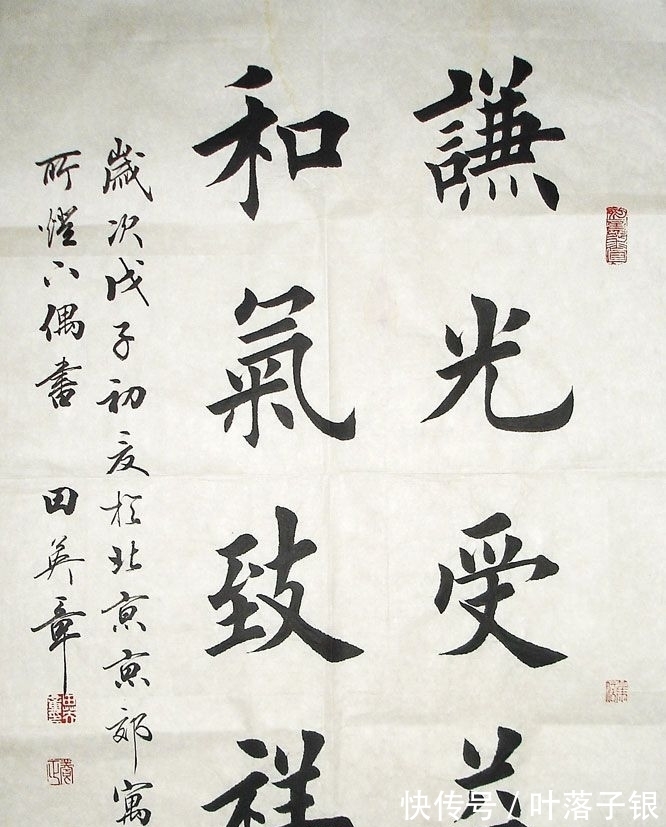 謙光受
和氣致祥
歲次戊子初夏於北京京郊寓
所燈下偶書 田英章
快传号/叶落子银